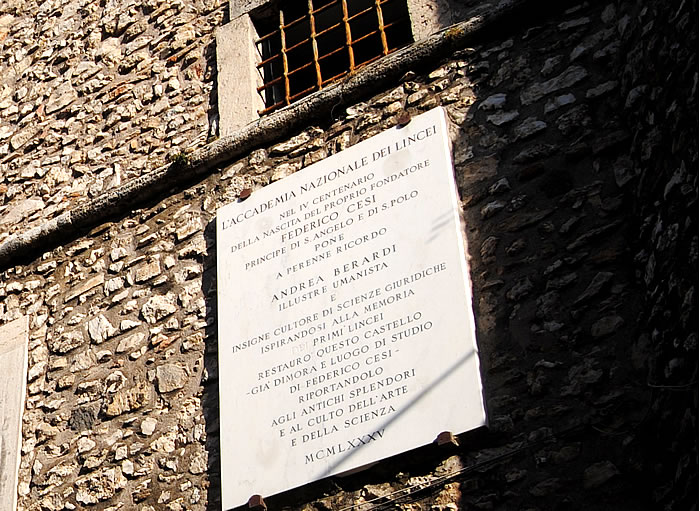 L'ACCADEMIA NAZIONALE DEI LINCEI
NEL IV CENTENARIO
DELLA NASCITA DEL PROPRIO FONDATORE
FEDERICO CESI
PRINCIPE DI S. ANGELO E DI S. POLO
PONE
A PERENNE RICORDO
ANDREA BERARDI
ILLUSTRE UMANISTA
E
INSIGNE CULTORE DI SCIENZE GIURIDICHE
ISPIRANDOSI ALLA MEMORIA
DEI PRIMI LINCEI
RESTAURO QUESTO CASTELLO
-GIÀ DIMORA E LUOGO DI STUDIO
DI FEDERICO CESI-
RIPORTANDOLO
AGLI ANTICHI SPLENDORI
E AL CULTO DELL'ARTE
E DELLA SCIENZA
MCMLXXXV